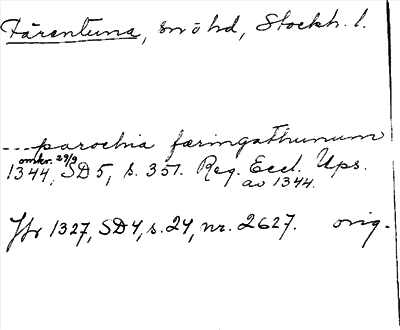 Färentuna, sn o hd, Stockh. l.
---- parochia færingathunum
omkr. 29/9
1344, SD5, s. 351. Reg. Eccl. Ups.
av 1344.
Jfr 1327, SD4, s. 24, nr. 2627. orig.